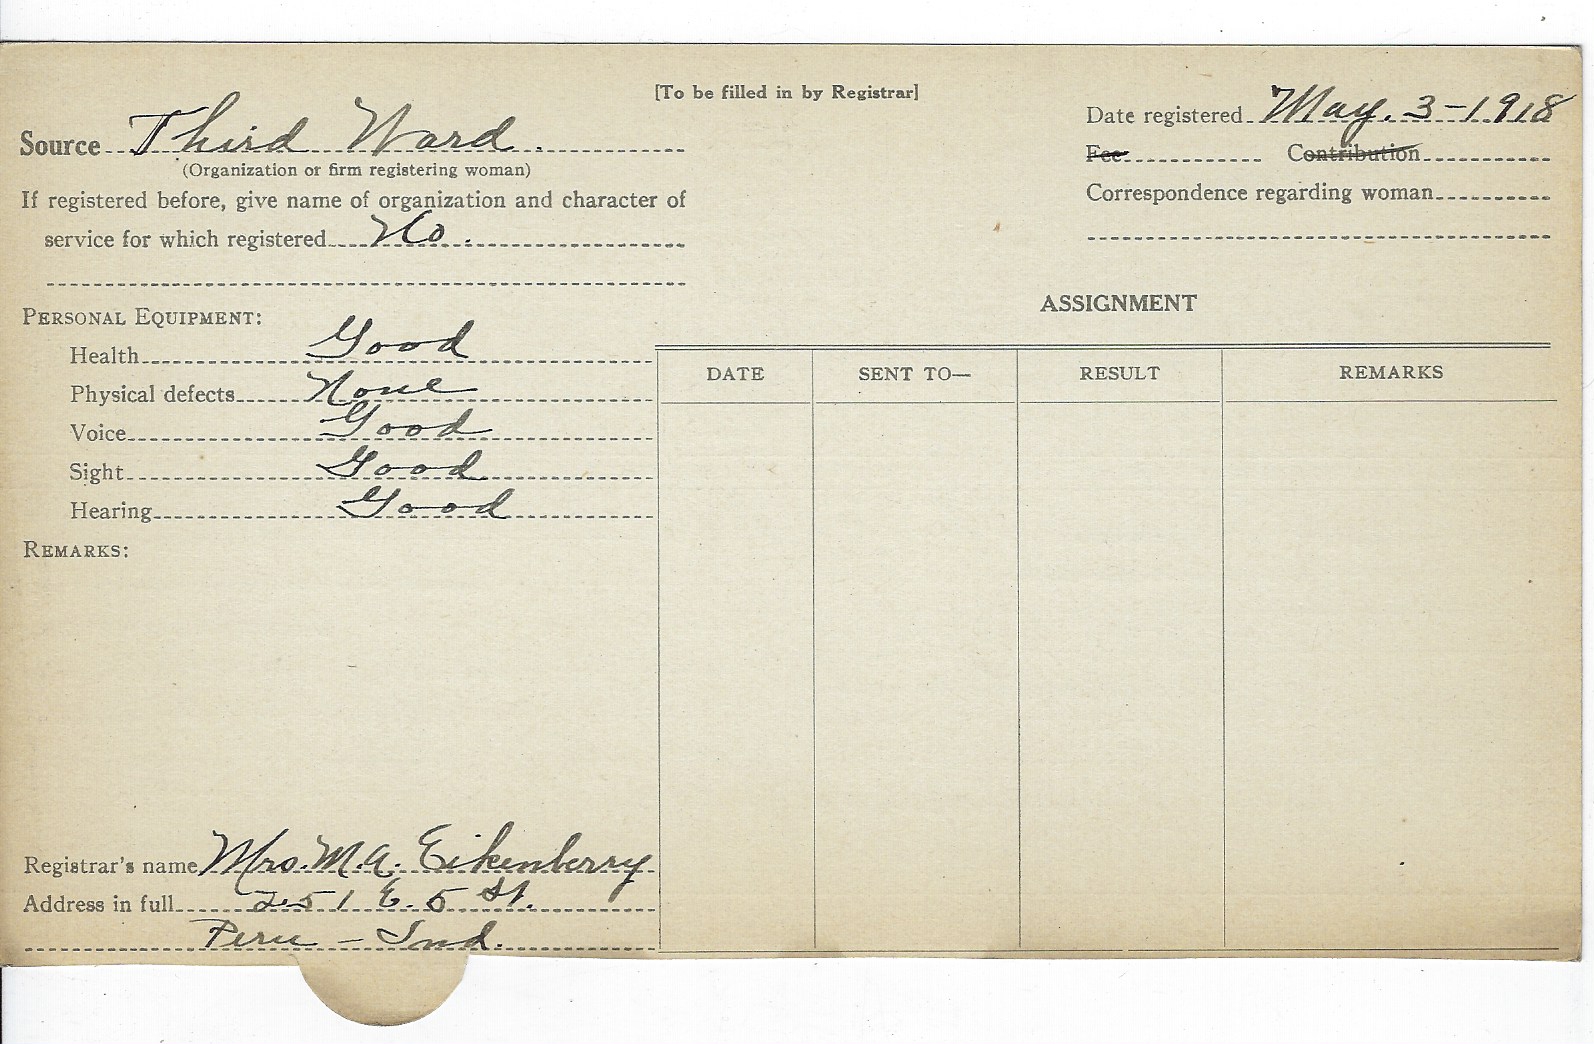 [To be filled in by Registrar]
Source Third Ward.
(Organization or firm registering woman)
If registered before, give name of organization and character of
service for which registered No.
Date registered May. 3-1918
Fee Contribution
Correspondence regarding woman
PERSONAL EQUIPMENT:
Health Good
Physical defects None
Voice Good
Sight Good
Hearing Good
REMARKS:
ASSIGNMENT
DATE SENT TO— RESULT REMARKS
Registrar's name Mrs. M.A. Eikenberry
Address in full 251 E. 5 St.
Peru – Ind.